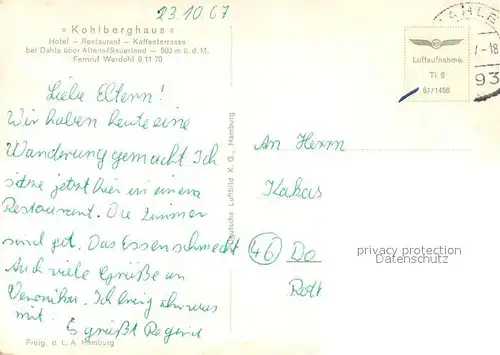 23.10.67
* Kohlberghaus *
Hotel – Restaurant – Kaffeeterrasse
bei Dahle über Altena/Sauerland — 500 m ü. d. M.
Fernruf Werdohl 6 11 70
Liebe Eltern!
Wir haben heute eine
Wanderung gemacht Ich
sitze jetzt hier in einem
Restaurant. Die Zimmer
sind gut. Das Essen schmeckt
Auch viele Grüße an
Veronika. Ich bring
mit.
Es grüßt
Freig. d. L. A. Hamburg
Deutsche Luftbild K. G., Hamburg
Luftaufnahme
TI 6
61/1466
-18
93
An Herrn
Kakas
46 Do
privacy protection
Datenschutz